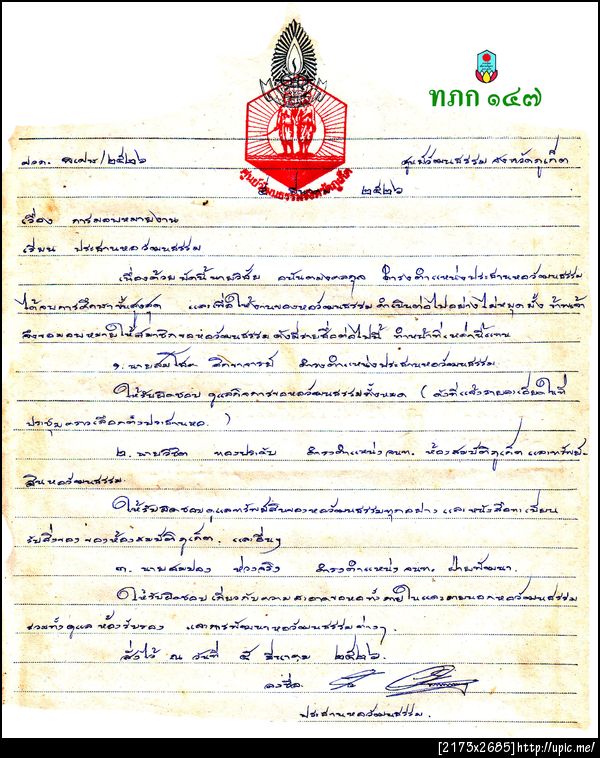 ทภก ๑๔๗
ศวภ. /๒๕๒๖ ศูนย์วัฒนธรรม จังหวัดภูเก็ต
ศูนย์วัฒนธรรมจังหวัดภูเก็ต
๕ มีนาคม ๒๕๒๖
เรื่อง การมอบหมายงาน
เรียน ประธานหอวัฒนธรรม
เนื่องด้วย บัดนี้ นายวิชัย อนันตมงคลกุล ดำรงตำแหน่งประธานหอวัฒนธรรม
ได้จบการศึกษาขั้นสูงสุด และเพื่อให้งานของหอวัฒนธรรม ดำเนินต่อไปอย่างไม่หยุดยั้ง ข้าพเจ้า
จึงขอมอบหมายให้สมาชิกหอวัฒนธรรม ดังมีรายชื่อต่อไปนี้ ทำหน้าที่เหล่านี้แทน
๑. นายสมโชค ดำรงตำแหน่งประธานหอวัฒนธรรม
ให้รับผิดชอบ ดูแลกิจการของหอวัฒนธรรมทั้งหมด ( ดังที่แจ้งรายละเอียดในที่
ประชุมคราวเลือกตั้งประธานหอ. )
๒. นายวิชิต ทองประดับ ดำรงตำแหน่ง จนท. ห้องสมบัติภูเก็ต และทรัพย์-
สินหอวัฒนธรรม.
ให้รับผิดชอบดูแลทรัพย์สินของหอวัฒนธรรมทุกอย่าง และหนังสือทะเบียน
รับสิ่งของ ของห้องสมบัติภูเก็ต. และอื่นๆ
๓. นายสมปอง ห่วงจริง ดำรงตำแหน่ง จนท. ฝ่ายพัฒนา.
ให้รับผิดชอบ เกี่ยวกับความสะอาดของหอทั้งภายในและภายนอกหอวัฒนธรรม
รวมทั้งดูแล ห้องรับรอง และการพัฒนาหอวัฒนธรรมต่างๆ.
สั่งไว้ ณ วันที่ ๕ มีนาคม ๒๕๒๖.
ลงชื่อ
ประธานหอวัฒนธรรม.
[2173x2685]http://upic.me/